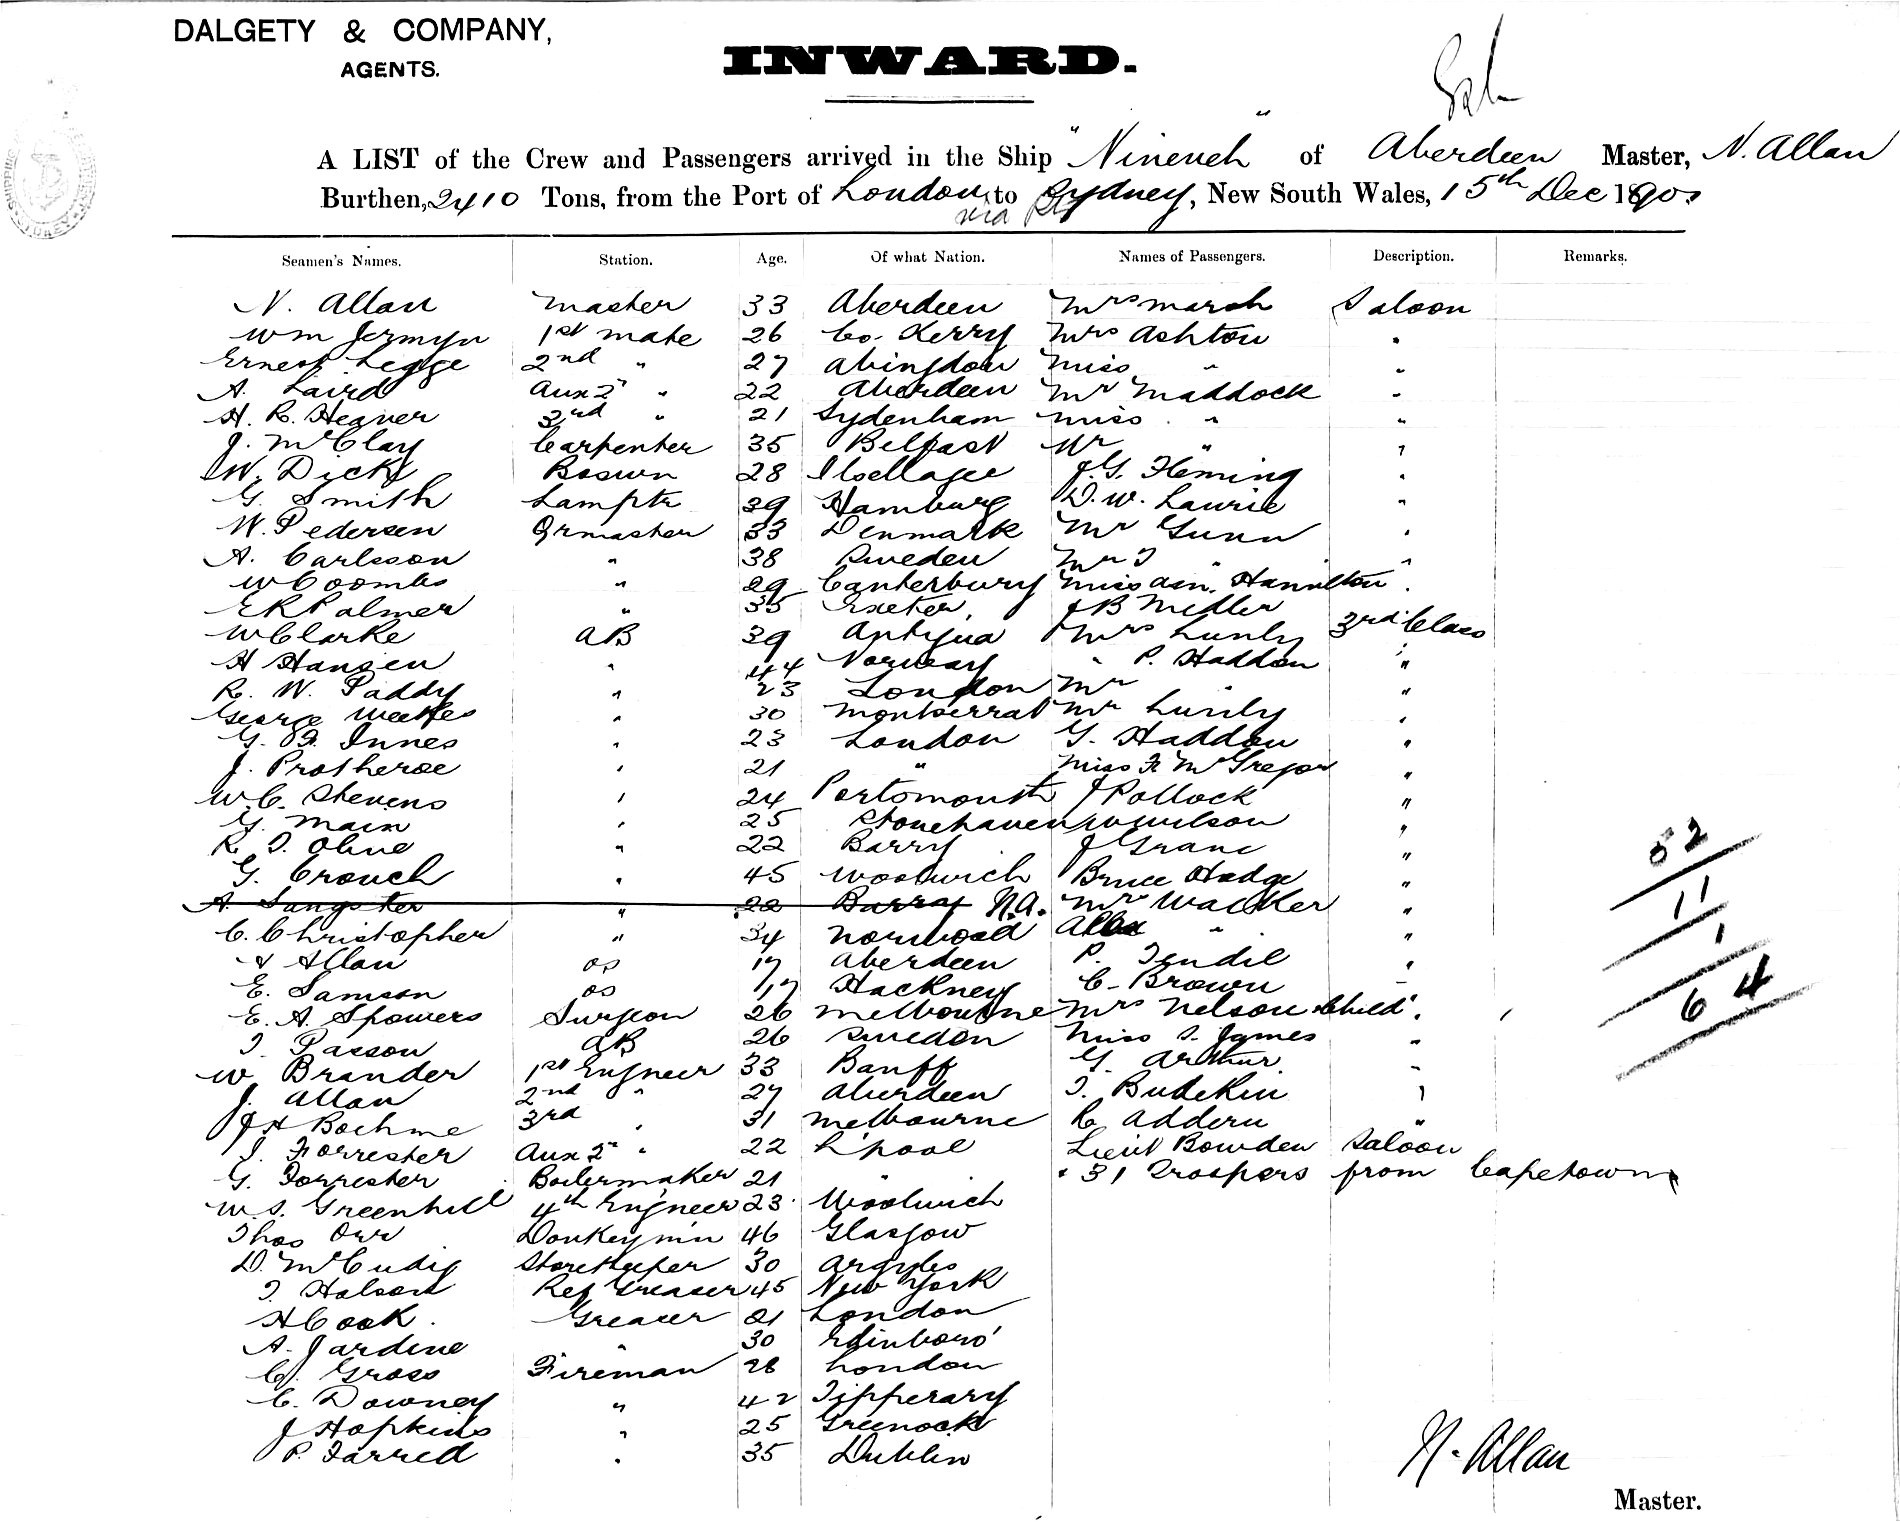 DALGETY & COMPANY,
AGENTS.
INWARD.
A LIST of the Crew and Passengers arrived in the Ship "Nineveh" of Aberdeen Master, N. Allan
Burthen, 2410 Tons, from the Port of London to Sydney, New South Wales, 15th Dec 190
via
Seamen's Names. Station. Age. Of what Nation. Names of Passengers. Description. Remarks.
N. Allan Master 33 Aberdeen Mrs Marsh Saloon
Wm Jermyn 1st Mate 26 Co. Kerry Mrs Ashton "
Ernest Legge 2nd " 27 Abingdon Miss " "
A. Laird Aux 2nd " 22 Aberdeen Mr Maddock "
H. R. Heaver 3rd " 21 Sydenham Miss " "
J. McClay Carpenter 35 Belfast Mr " "
W. Dick Boswn 28 J.G. Fleming "
G. Smith Lamptr 39 Hamburg D. W. Laurie "
W. Pedersen Qrmaster 33 Denmark Mr Gunn "
A. Carlsson " 38 Sweden " "
W Coombs " 29 Canterbury Miss Hamilton "
E R Palmer " 35 Exeter J B
W Clarke AB 39 Antigua Mrs 3rd Class
H Hansen " 44 Norway " P. Haddon "
R. W. Paddy " 23 London Mr "
George Weekes " 30 Montserrat Mr "
G. F. Innes " 23 London G. Haddon "
J. Protheroe " 21 " Miss F. McGregor "
W. C. Stevens " 24 Portsmouth J Pollock "
G. Main " 25 Stonehaven W Wilson "
R. T. Oline " 22 Barry J Grant "
G. Crouch " 45 Woolwich Bruce Hodge "
A. Sangster " 22 Barry N.A. Mrs Walker "
C. Christopher " 34 Norwood " "
Allan OS 17 Aberdeen P. "
E. Samson OS 17 Hackney C. Brown "
E. A. Spowers Surgeon 26 Melbourne Mrs Nelson & Child "
T. Passon AB 26 Sweden Miss S. James "
W Brander 1st Engneer 33 Banff G. Arthur "
J. Allan 2nd " 27 Aberdeen T. "
J H Boehme 3rd " 31 Melbourne "
J. Forrester Aux 2nd " 22 L'pool Lieut Bowden Saloon
G. Forrester Boilermaker 21 " " 31 Troopers from Capetown
W. S. Greenhill 4th Engneer 23 Woolwich
Thos Orr Donkeymn 46 Glasgow
D. McCudig Storekeeper 30 Argyles
T Ref Greaser 45 New York
H Cook Greaser 21 London
A. Jardine " 30 Edinboro'
C. Gross Fireman 28 London
C. Downey " 42 Tipperary
J Hopkins " 25 Greenock
P. Farred " 35 Dublin
52
11
1
64
N. Allan
Master.